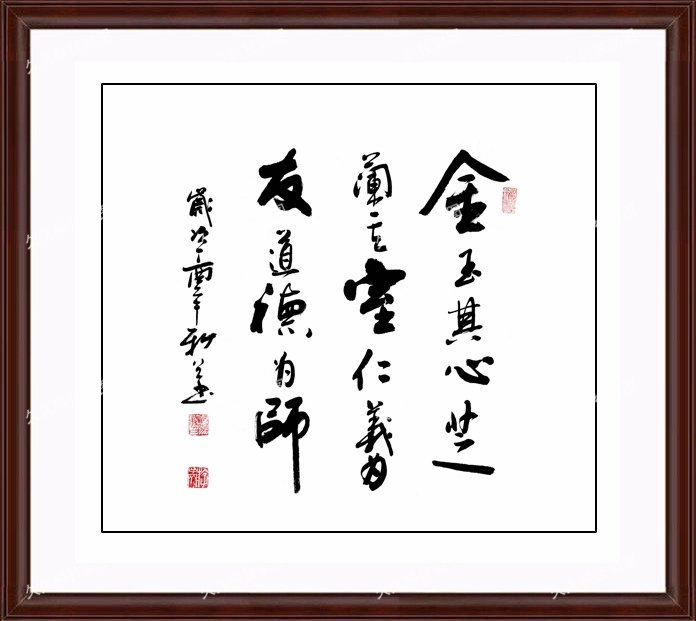 金玉其心芝
蘭其室仁義為
友道德為師
歲次丁酉年秋